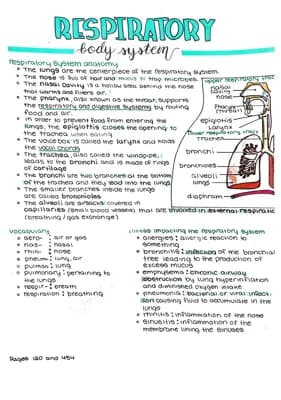 RESPIRATORY
body system
Respiratory System anatomy
• The lungs are the centerpiece of the respiratory system.
• The nose is full of hair and mucus to trap microbes.
• The nasal cavity is a hollow area behind the nose
that warms and filters air.
• The pharynx, also known as the throat, supports
the respiratory and digestive systems by routing
food and air.
• In order to prevent food from entering the
lungs, the epiglottis closes the opening to
the trachea when eating
• The voice box is called the larynx and holds
the vocal chords
• The trachea, also called the windpipe,
leads to the bronchi and is made of rings
of cartilage
• The bronchi are two branches at the bottom
of the trachea and they lead into the lungs
• The smaller branches inside the lungs
are called bronchioles
• The alveoli are surfaces covered in
capillaries (small blood vessels) that are involved in external respiration
(breathing / gas exchange)
upper respiratory tract
nasal cavity
nose
Pharynx (throat)
epiglottis
larynx
lower respiratory tract
trachea
bronchi
bronchioles
alveoli
lungs
diaphram
Vocabulary
• aero- : air or gas
• nas- : nasal
• rhin- : nose
• pneum : lung, air
• pulmon : lung
• pulmonary : pertaining to
the lungs
• respir- : breath
• respiration : breathing
impacting the respiratory system
• allergies : allergic reaction to
something
• bronchitis : infection of the bronchial
tree leading to the production of
excess mucus
• emphysema : chronic airway
obstruction by lung hyperinflation
and diminished oxygen intake
• pneumonia : bacterial or viral infect-
ion causing fluid to accumulate in the
lungs
• rhinitis : inflammation of the nose
• sinusitis : inflammation of the
membrane lining the sinuses
Pages 180 and 454